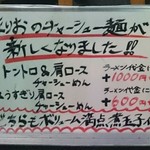 りおのチャーシュー麺が
新しくなりました!!
トントロ&肩ロース
チャーシューめん
ラーメン代金に
+1000円
うすぎり肩ロース
チャーシューめん
ラーメン代金に
+600円
どちらもボリューム満点煮玉子